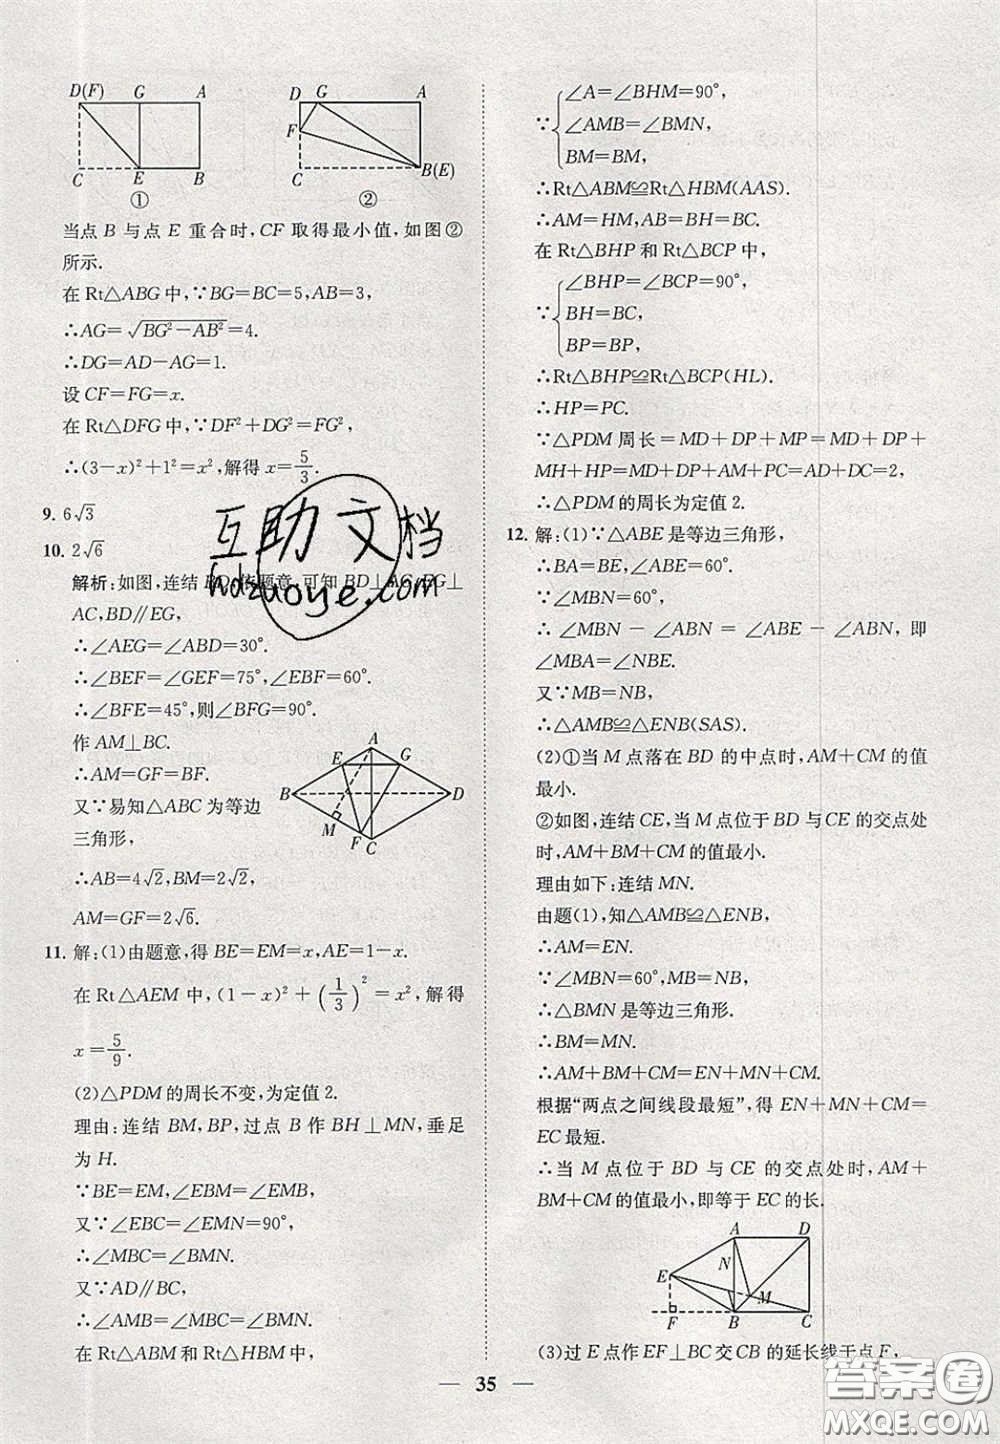 D(F) G A
C E B
①
D G A
F
C B(E)
②
当点 B 与点 E 重合时,CF 取得最小值,如图②
所示.
在 Rt△ABG 中,∵BG=BC=5,AB=3,
∴AG=√(BG²-AB²)=4.
∴DG=AD-AG=1.
设 CF=FG=x.
在 Rt△DFG 中,∵DF²+DG²=FG²,
∴(3-x)²+1²=x²,解得 x=5/3.
9. 6√3
10. 2√6
解析:如图,连结 BD,依题意,可知 BD⊥AC,EG⊥
AC,BD∥EG,
∴∠AEG=∠ABD=30°.
∴∠BEF=∠GEF=75°,∠EBF=60°.
∴∠BFE=45°,则∠BFG=90°.
作 AM⊥BC.
∴AM=GF=BF.
又∵易知△ABC 为等边
三角形,
∴AB=4√2,BM=2√2,
AM=GF=2√6.
A
E G
B D
M F C
11. 解:(1)由题意,得 BE=EM=x,AE=1-x.
在 Rt△AEM 中,(1-x)²+(1/3)²=x²,解得
x=5/9.
(2)△PDM 的周长不变,为定值 2.
理由:连结 BM,BP,过点 B 作 BH⊥MN,垂足
为 H.
∵BE=EM,∠EBM=∠EMB.
又∵∠EBC=∠EMN=90°,
∴∠MBC=∠BMN.
又∵AD∥BC,
∴∠AMB=∠MBC=∠BMN.
在 Rt△ABM 和 Rt△HBM 中,
∵{∠A=∠BHM=90°,
∠AMB=∠BMN,
BM=BM,
∴Rt△ABM≌Rt△HBM(AAS).
∴AM=HM,AB=BH=BC.
在 Rt△BHP 和 Rt△BCP 中,
∵{∠BHP=∠BCP=90°,
BH=BC,
BP=BP,
∴Rt△BHP≌Rt△BCP(HL).
∴HP=PC.
∵△PDM 周长=MD+DP+MP=MD+DP+
MH+HP=MD+DP+AM+PC=AD+DC=2,
∴△PDM 的周长为定值 2.
12. 解:(1)∵△ABE 是等边三角形,
∴BA=BE,∠ABE=60°.
∵∠MBN=60°,
∴∠MBN-∠ABN=∠ABE-∠ABN,即
∠MBA=∠NBE.
又∵MB=NB,
∴△AMB≌△ENB(SAS).
(2)①当 M 点落在 BD 的中点时,AM+CM 的值
最小.
②如图,连结 CE,当 M 点位于 BD 与 CE 的交点处
时,AM+BM+CM 的值最小.
理由如下:连结 MN.
由题(1),知△AMB≌△ENB,
∴AM=EN.
∵∠MBN=60°,MB=NB,
∴△BMN 是等边三角形.
∴BM=MN.
∴AM+BM+CM=EN+MN+CM.
根据“两点之间线段最短”,得 EN+MN+CM=
EC 最短.
∴当 M 点位于 BD 与 CE 的交点处时,AM+
BM+CM 的值最小,即等于 EC 的长.
A D
N
E
M
F B C
(3)过 E 点作 EF⊥BC 交 CB 的延长线于点 F,
35
互助文档
hdzuoye.com
答案圈
MXQE.COM